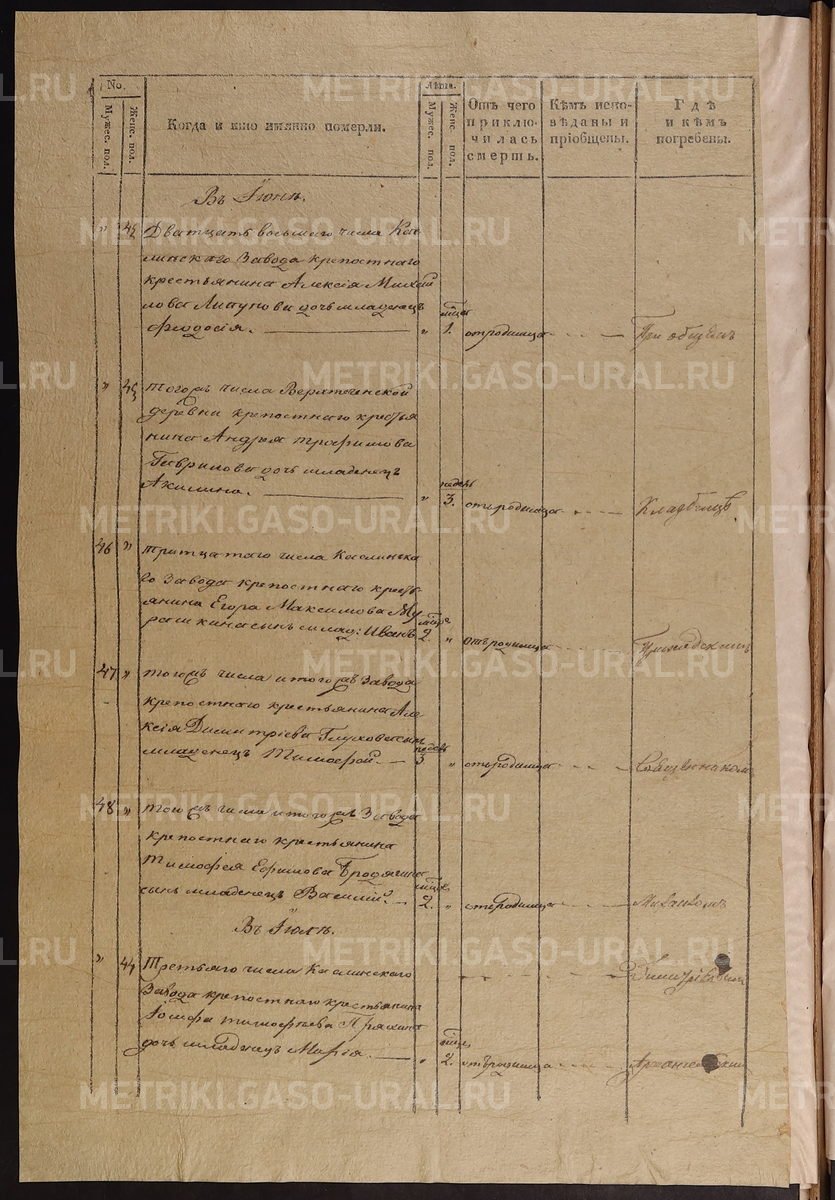 No.
Мужес. пол.
Женс. пол.
Когда и кто имянно померли.
Лѣта.
Мужес. пол.
Женс. пол.
Отъ чего приключилась смерть.
Кѣмъ исповѣданы и пріобщены.
Гдѣ и кѣмъ погребены.
Въ Іюнѣ.
" Дватцать восьмаго числа Кас-
линскаго Завода крепостнаго
крестьянина Алексія Михай
лова дочь младенецъ
Феодосія. " 1. отродимца При общемъ
" тогожъ числа
деревни крепостнаго крестья
нина Андрея Трофимова
Гаврилова дочь младенецъ
Акилина. " недель 3. отъродимца Кладбищѣ
46 " Тритцатаго числа Каслинска
го Завода крепостнаго кресть-
янина Егора Максимова Му
рашкина сынъ млад: Иванъ 2. " отъродимца Приходскимъ
47 " тогожъ числа итогожъ Завода
крепостнаго крестьянина Але-
ксія Димитріева Глухова сынъ
младенецъ Тимофей. недель 3 " отъродимца Священникомъ
48 " тогожъ числа итогожъ Завода
крепостнаго крестьянина
Тимофея Ефимова
сынъ младенецъ Василій. 2. " отъродимца
Въ Іюлѣ.
" 44 Третьяго числа Каслинскаго
Завода крепостнаго крестьянина
Іосифа Тимофеева
дочь младенецъ Марія. " 2. отъродимца Архангельскимъ
METRIKI.GASO-URAL.RU